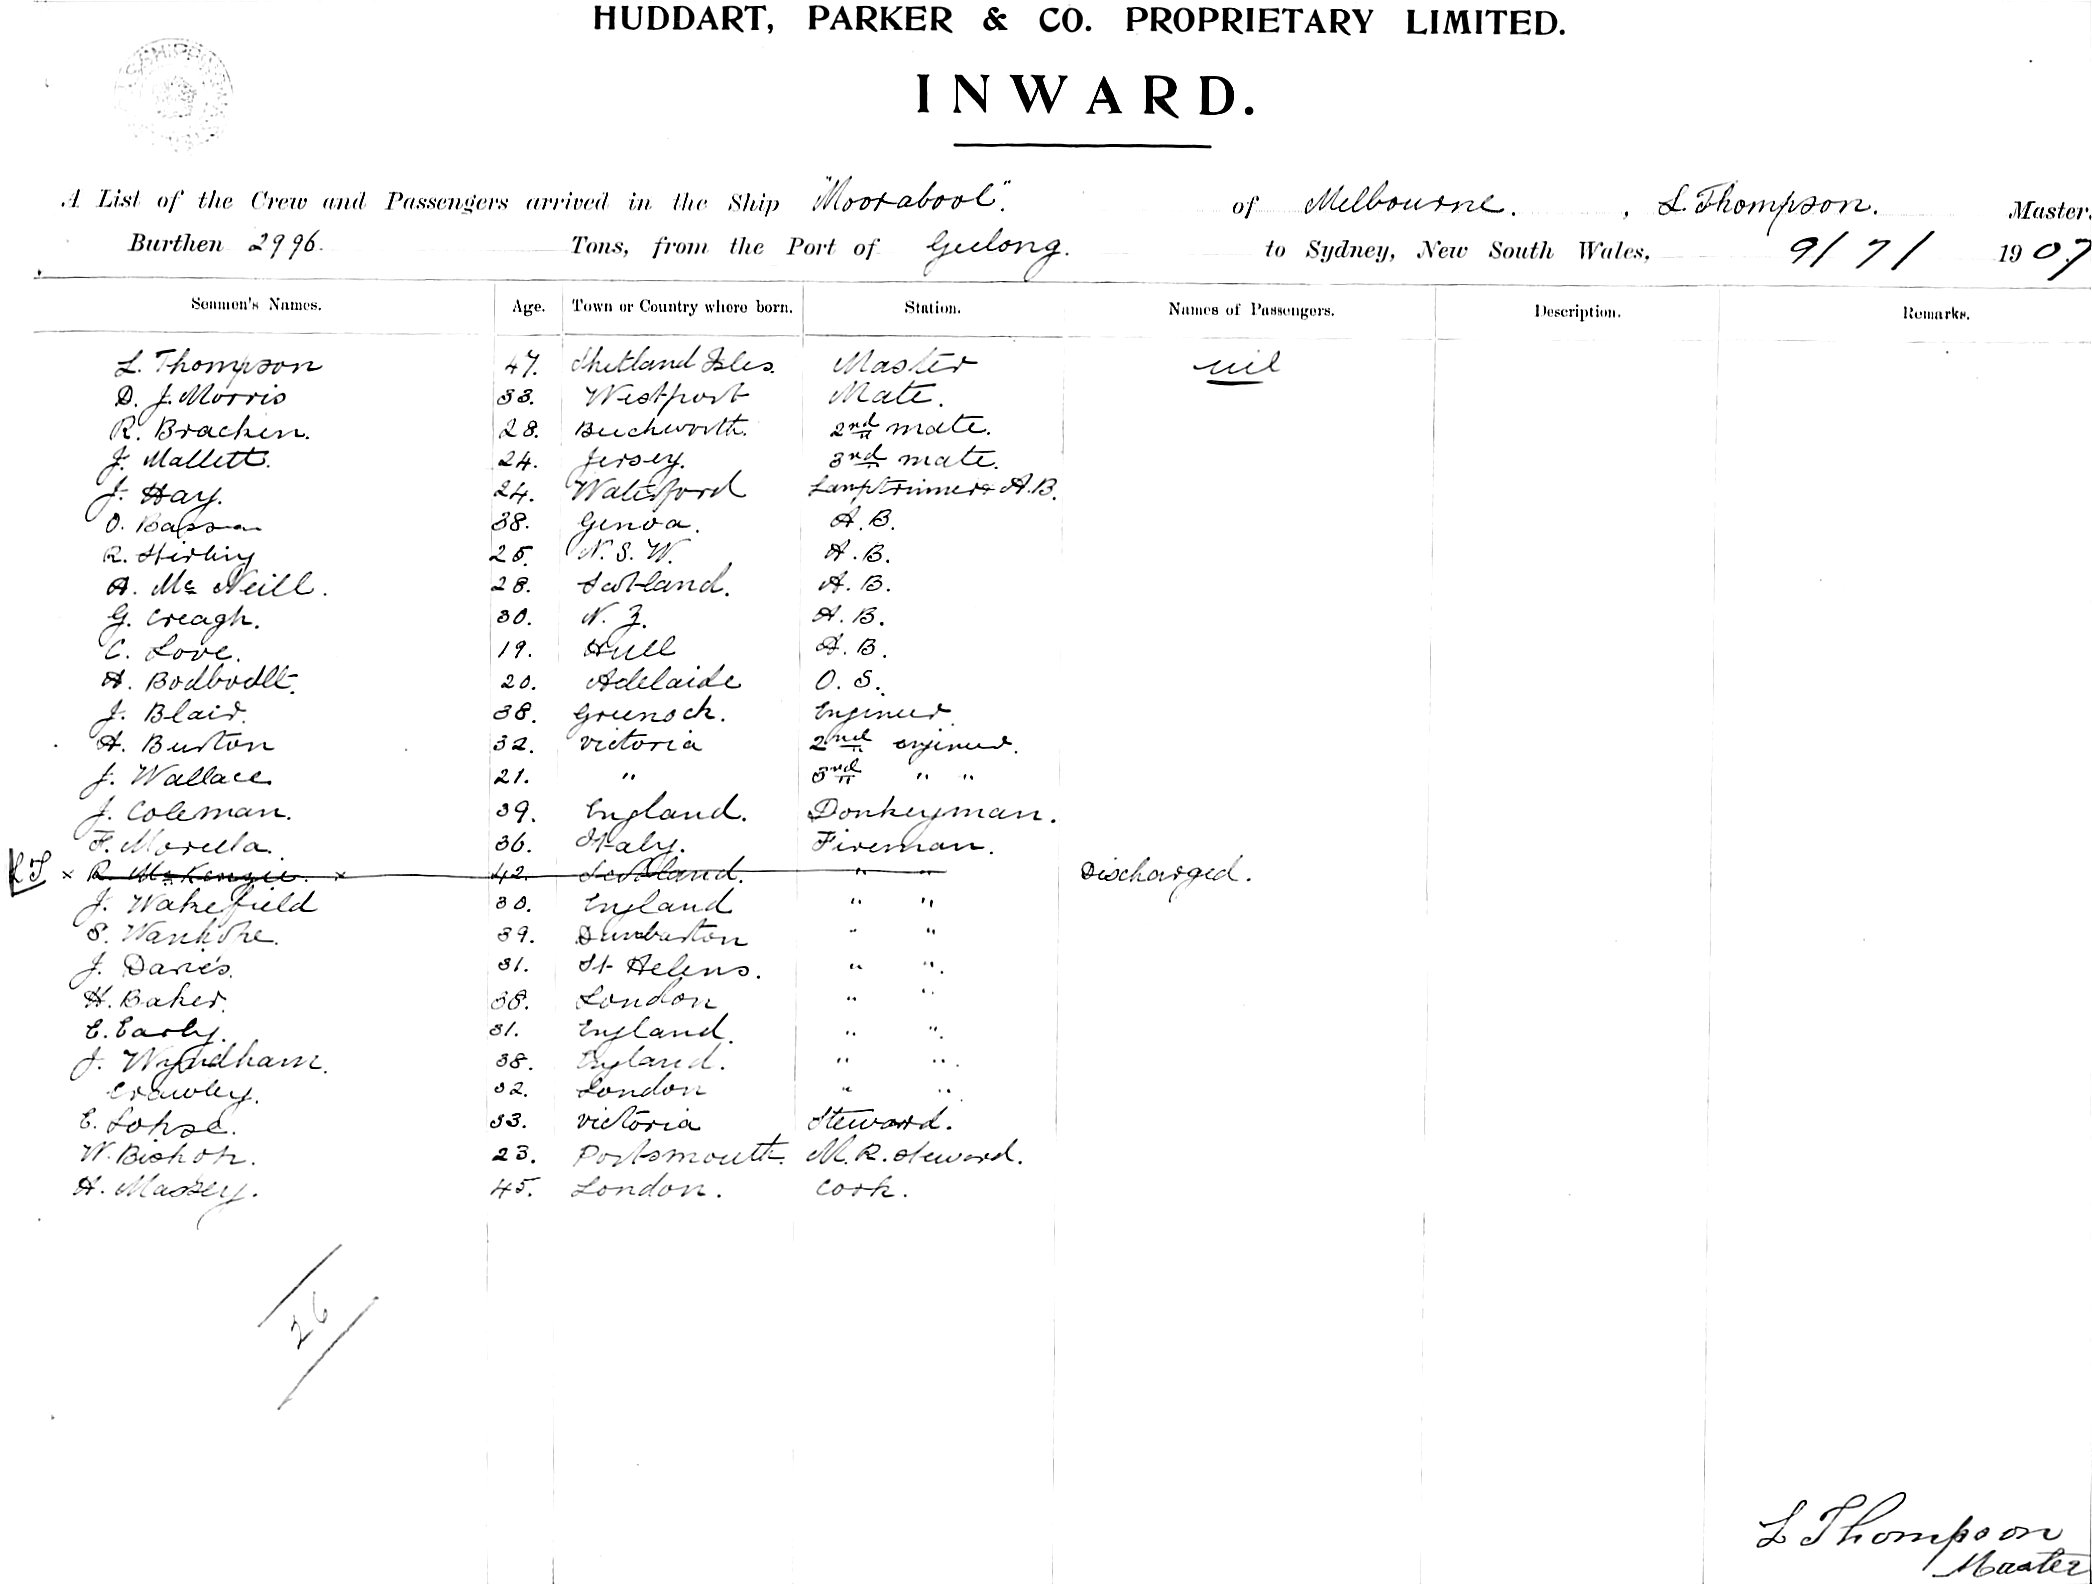 HUDDART, PARKER & CO. PROPRIETARY LIMITED.
INWARD.
A List of the Crew and Passengers arrived in the Ship "Moorabool". of Melbourne. , L. Thompson. Master,
Burthen 2996. Tons, from the Port of Geelong. to Sydney, New South Wales, 9/7/ 1907
Seamen's Names. Age. Town or Country where born. Station. Names of Passengers. Description. Remarks.
L. Thompson 47. Shetland Isles. Master nil
D. J. Morris 33. Westport Mate.
R. Bracken. 28. Beechworth. 2nd mate.
J. Mallett. 24. Jersey. 3rd mate.
J. Hay. 24. Waterford Lamptrimmer A.B.
O. 38. Genoa. A.B.
R. Stirling 25. N.S.W. A.B.
A. Mc Neill. 28. Scotland. A.B.
G. Creagh. 30. N.Z. A.B.
C. Love. 19. Hull A.B.
A. Bodbodtt. 20. Adelaide O.S.
J. Blair. 38. Greenock. Engineer
A. Burton 32. Victoria 2nd engineer.
J. Wallace 21. " 3rd " "
J. Coleman. 39. England. Donkeyman.
F. Morella. 36. Italy. Fireman.
x R. McKenzie. x 42. Scotland. " " Discharged.
J. Wakefield 30. England " "
S. 39. Dumbarton " "
J. Davies. 31. St Helens. " ".
H. Baker. 38. London " "
E. Early. 31. England. " ".
J. Wyndham. 38. England. " ".
Crawley. 32. London " "
E. Lohse. 33. Victoria Steward.
W. Bishop. 23. Portsmouth. M.R. Steward.
A. Massey. 45. London. Cook.
26
L Thompson
Master